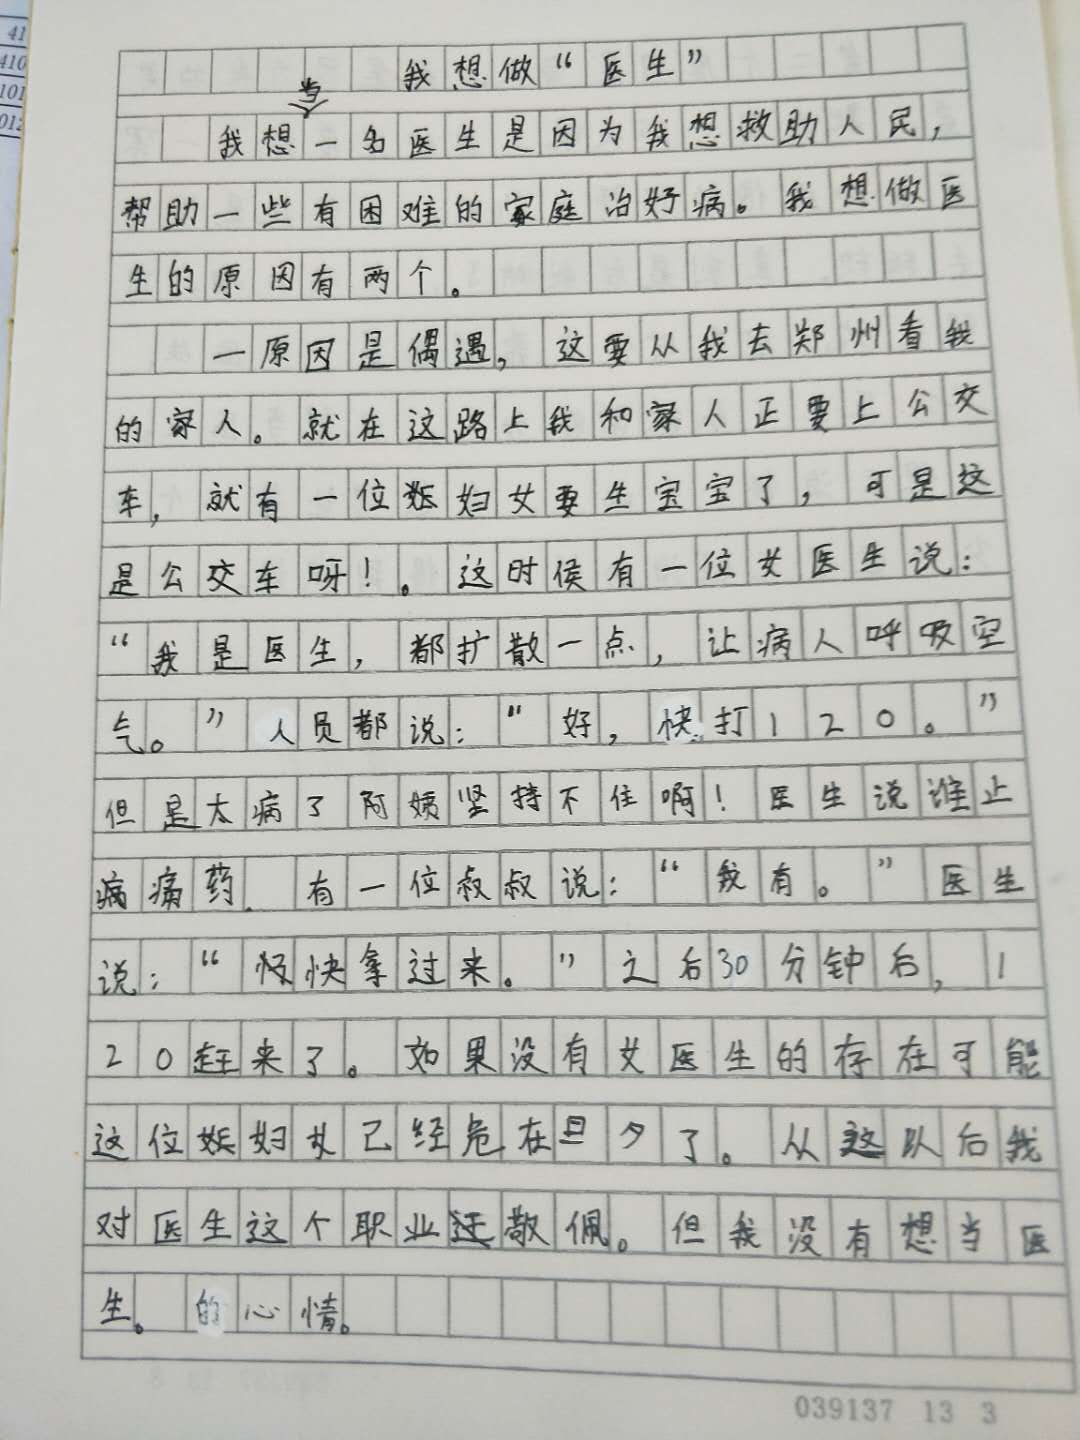 41
410
101
012
我想做“医生”
我想当一名医生是因为我想救助人民，
帮助一些有困难的家庭治好病。我想做医
生的原因有两个。
一原因是偶遇，这要从我去郑州看我
的家人。就在这路上我和家人正要上公交
车，就有一位妇女要生宝宝了，可是这
是公交车呀！。这时侯有一位女医生说：
“我是医生，都扩散一点，让病人呼吸空
气。”人员都说：“好，快打120。”
但是太病了阿姨坚持不住啊！医生说谁止
病痛药．有一位叔叔说：“我有。”医生
说：“快拿过来。”之后30分钟后，1
20赶来了。如果没有女医生的存在可能
这位妇女已经危在旦夕了。从这以后我
对医生这个职业敬佩。但我没有想当医
生。的心情。
039137 13 3